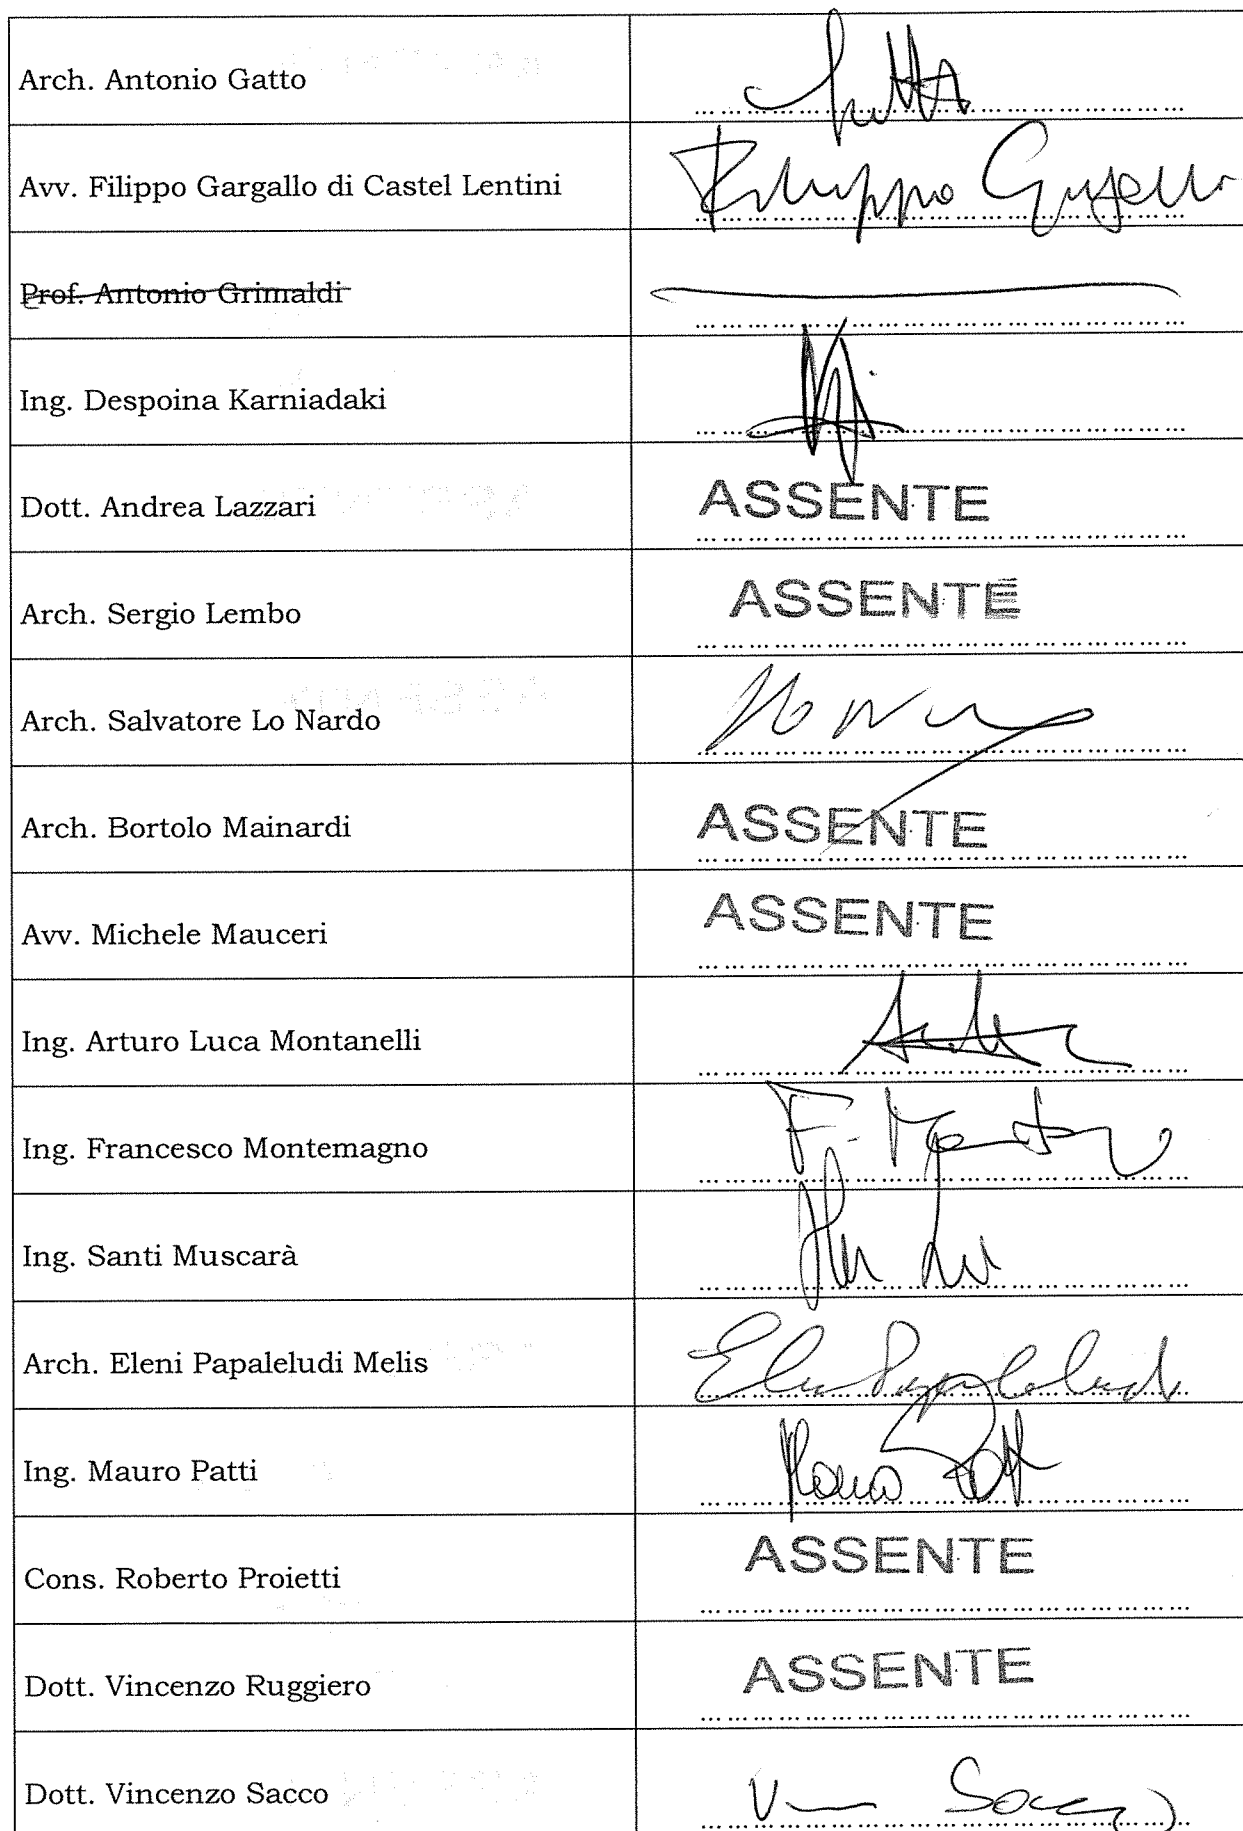 Arch. Antonio Gatto
Avv. Filippo Gargallo di Castel Lentini
Filippo Gargallo
Prof. Antonio Grimaldi
Ing. Despoina Karniadaki
Dott. Andrea Lazzari ASSENTE
Arch. Sergio Lembo ASSENTE
Arch. Salvatore Lo Nardo
Arch. Bortolo Mainardi ASSENTE
Avv. Michele Mauceri ASSENTE
Ing. Arturo Luca Montanelli
Ing. Francesco Montemagno
Ing. Santi Muscarà
Arch. Eleni Papaleludi Melis
Ing. Mauro Patti
Cons. Roberto Proietti ASSENTE
Dott. Vincenzo Ruggiero ASSENTE
Dott. Vincenzo Sacco Sacco